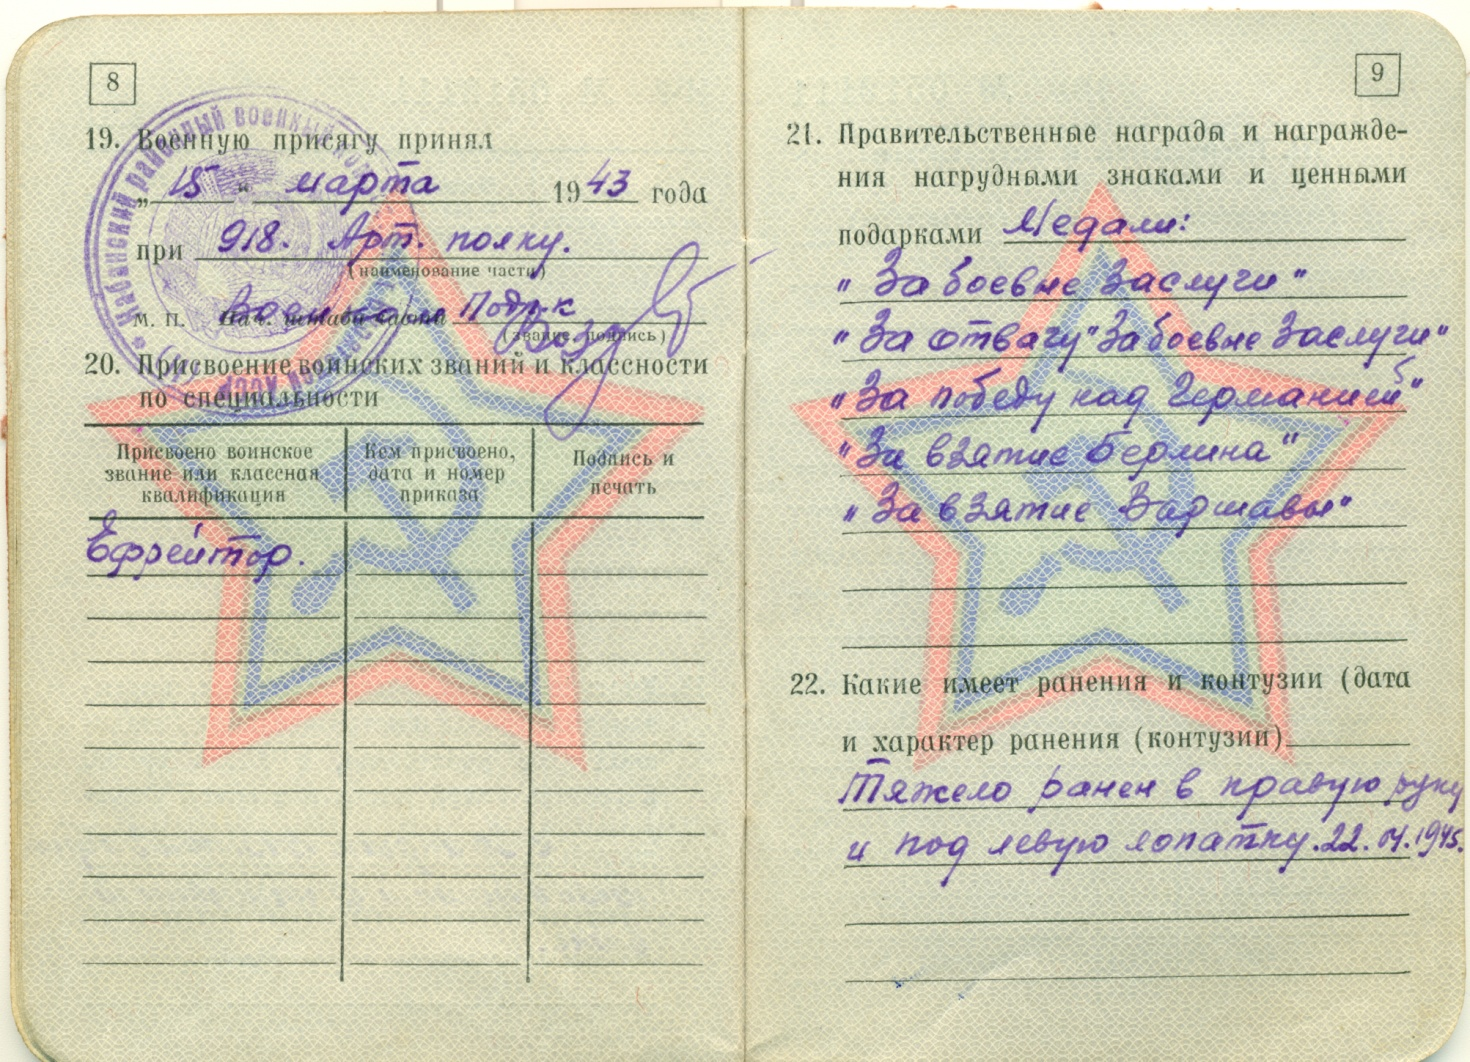 8
19. Военную присягу принял
„15“ марта 1943 года
при 918. Арт. полку.
(наименование части)
М. П. Нач. штаба части Подп-к
(звание, подпись)
20. Присвоение воинских званий и классности
по специальности
Присвоено воинское звание или классная квалификация
Кем присвоено, дата и номер приказа
Подпись и печать
Ефрейтор.
9
21. Правительственные награды и награжде-
ния нагрудными знаками и ценными
подарками Медали:
„За боевые Заслуги“
„За отвагу" "За боевые Заслуги"
„За победу над Германией"
„За взятие Берлина"
„За взятие Варшавы"
22. Какие имеет ранения и контузии (дата
и характер ранения (контузии)
Тяжело ранен в правую руку
и под левую лопатку. 22.04.1945.